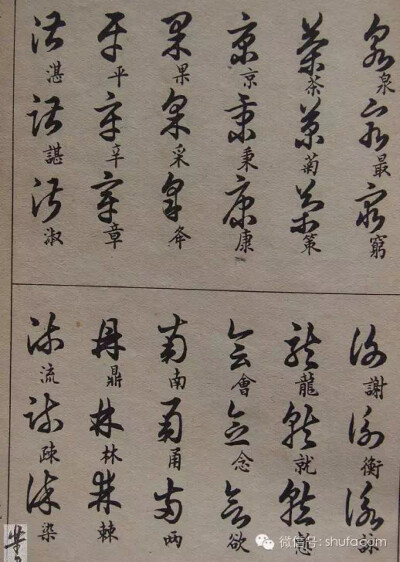 泉最窮
茶菊策
京秉康
果采
平辛章
湛諶淑
謝衡詠
龍就
會念欲
南甬兩
鼎林棘
流疎染
微信号: shufagom